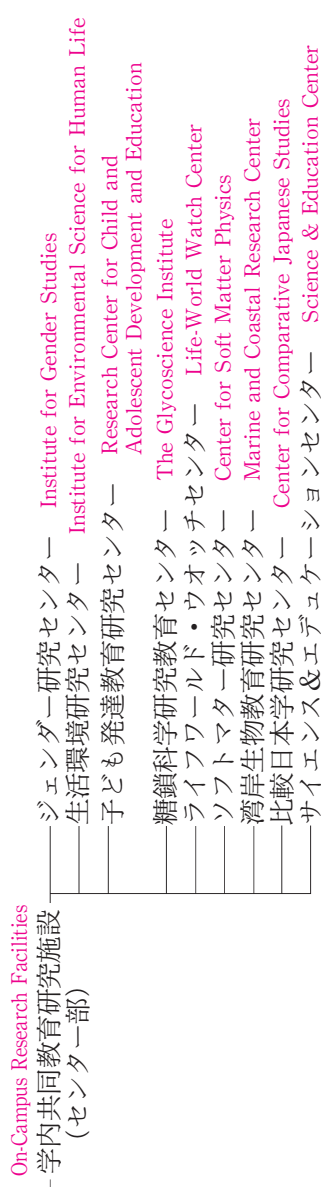 On-Campus Research Facilities
学内共同教育研究施設
(センター部)
ジェンダー研究センター Institute for Gender Studies
生活環境研究センター Institute for Environmental Science for Human Life
子ども発達教育研究センター Research Center for Child and
Adolescent Development and Education
糖鎖科学研究教育センター The Glycoscience Institute
ライフワールド・ウオッチセンター Life-World Watch Center
ソフトマター研究センター Center for Soft Matter Physics
湾岸生物教育研究センター Marine and Coastal Research Center
比較日本学研究センター Center for Comparative Japanese Studies
サイエンス&エデュケーションセンター Science & Education Center